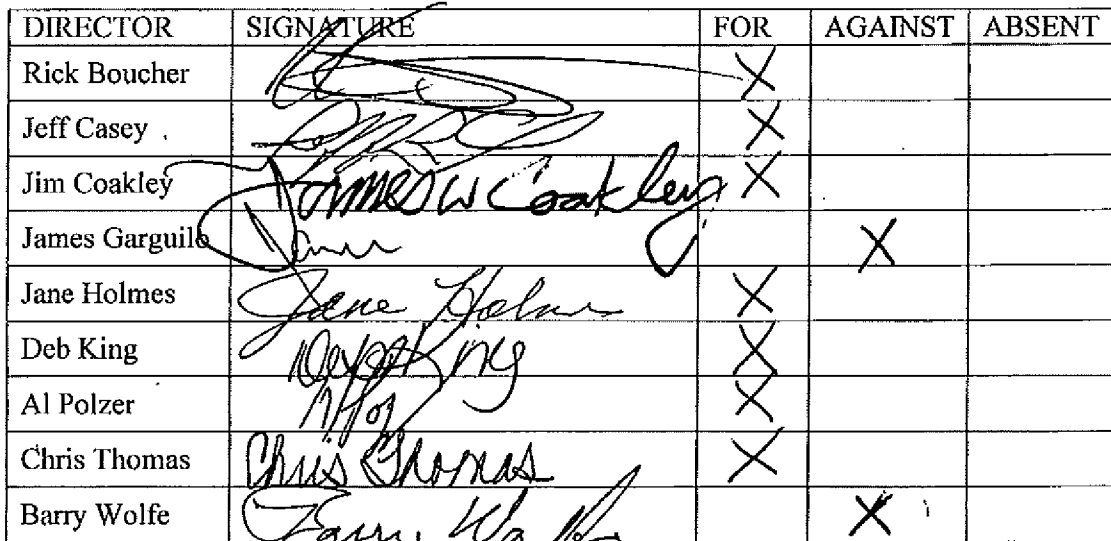 DIRECTOR SIGNATURE FOR AGAINST ABSENT
Rick Boucher X
Jeff Casey X
Jim Coakley James W Coakley X
James Garguilo X
Jane Holmes Jane Holmes X
Deb King Deb King X
Al Polzer X
Chris Thomas Chris Thomas X
Barry Wolfe Barry X